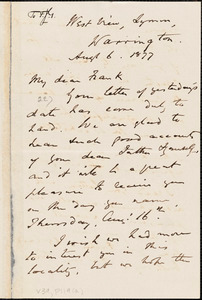 West View, Lymm,
Warrington.
Augt 6. 1877
My dear Frank
Your letter of yesterday's
date has come duly to
hand. We are glad to
hear such good accounts
of your dear Father & family,
and it will be a great
pleasure to receive you
on the day you name,
Thursday, Augt 16th.
I wish we had more
to interest you in this
locality, but we hope the